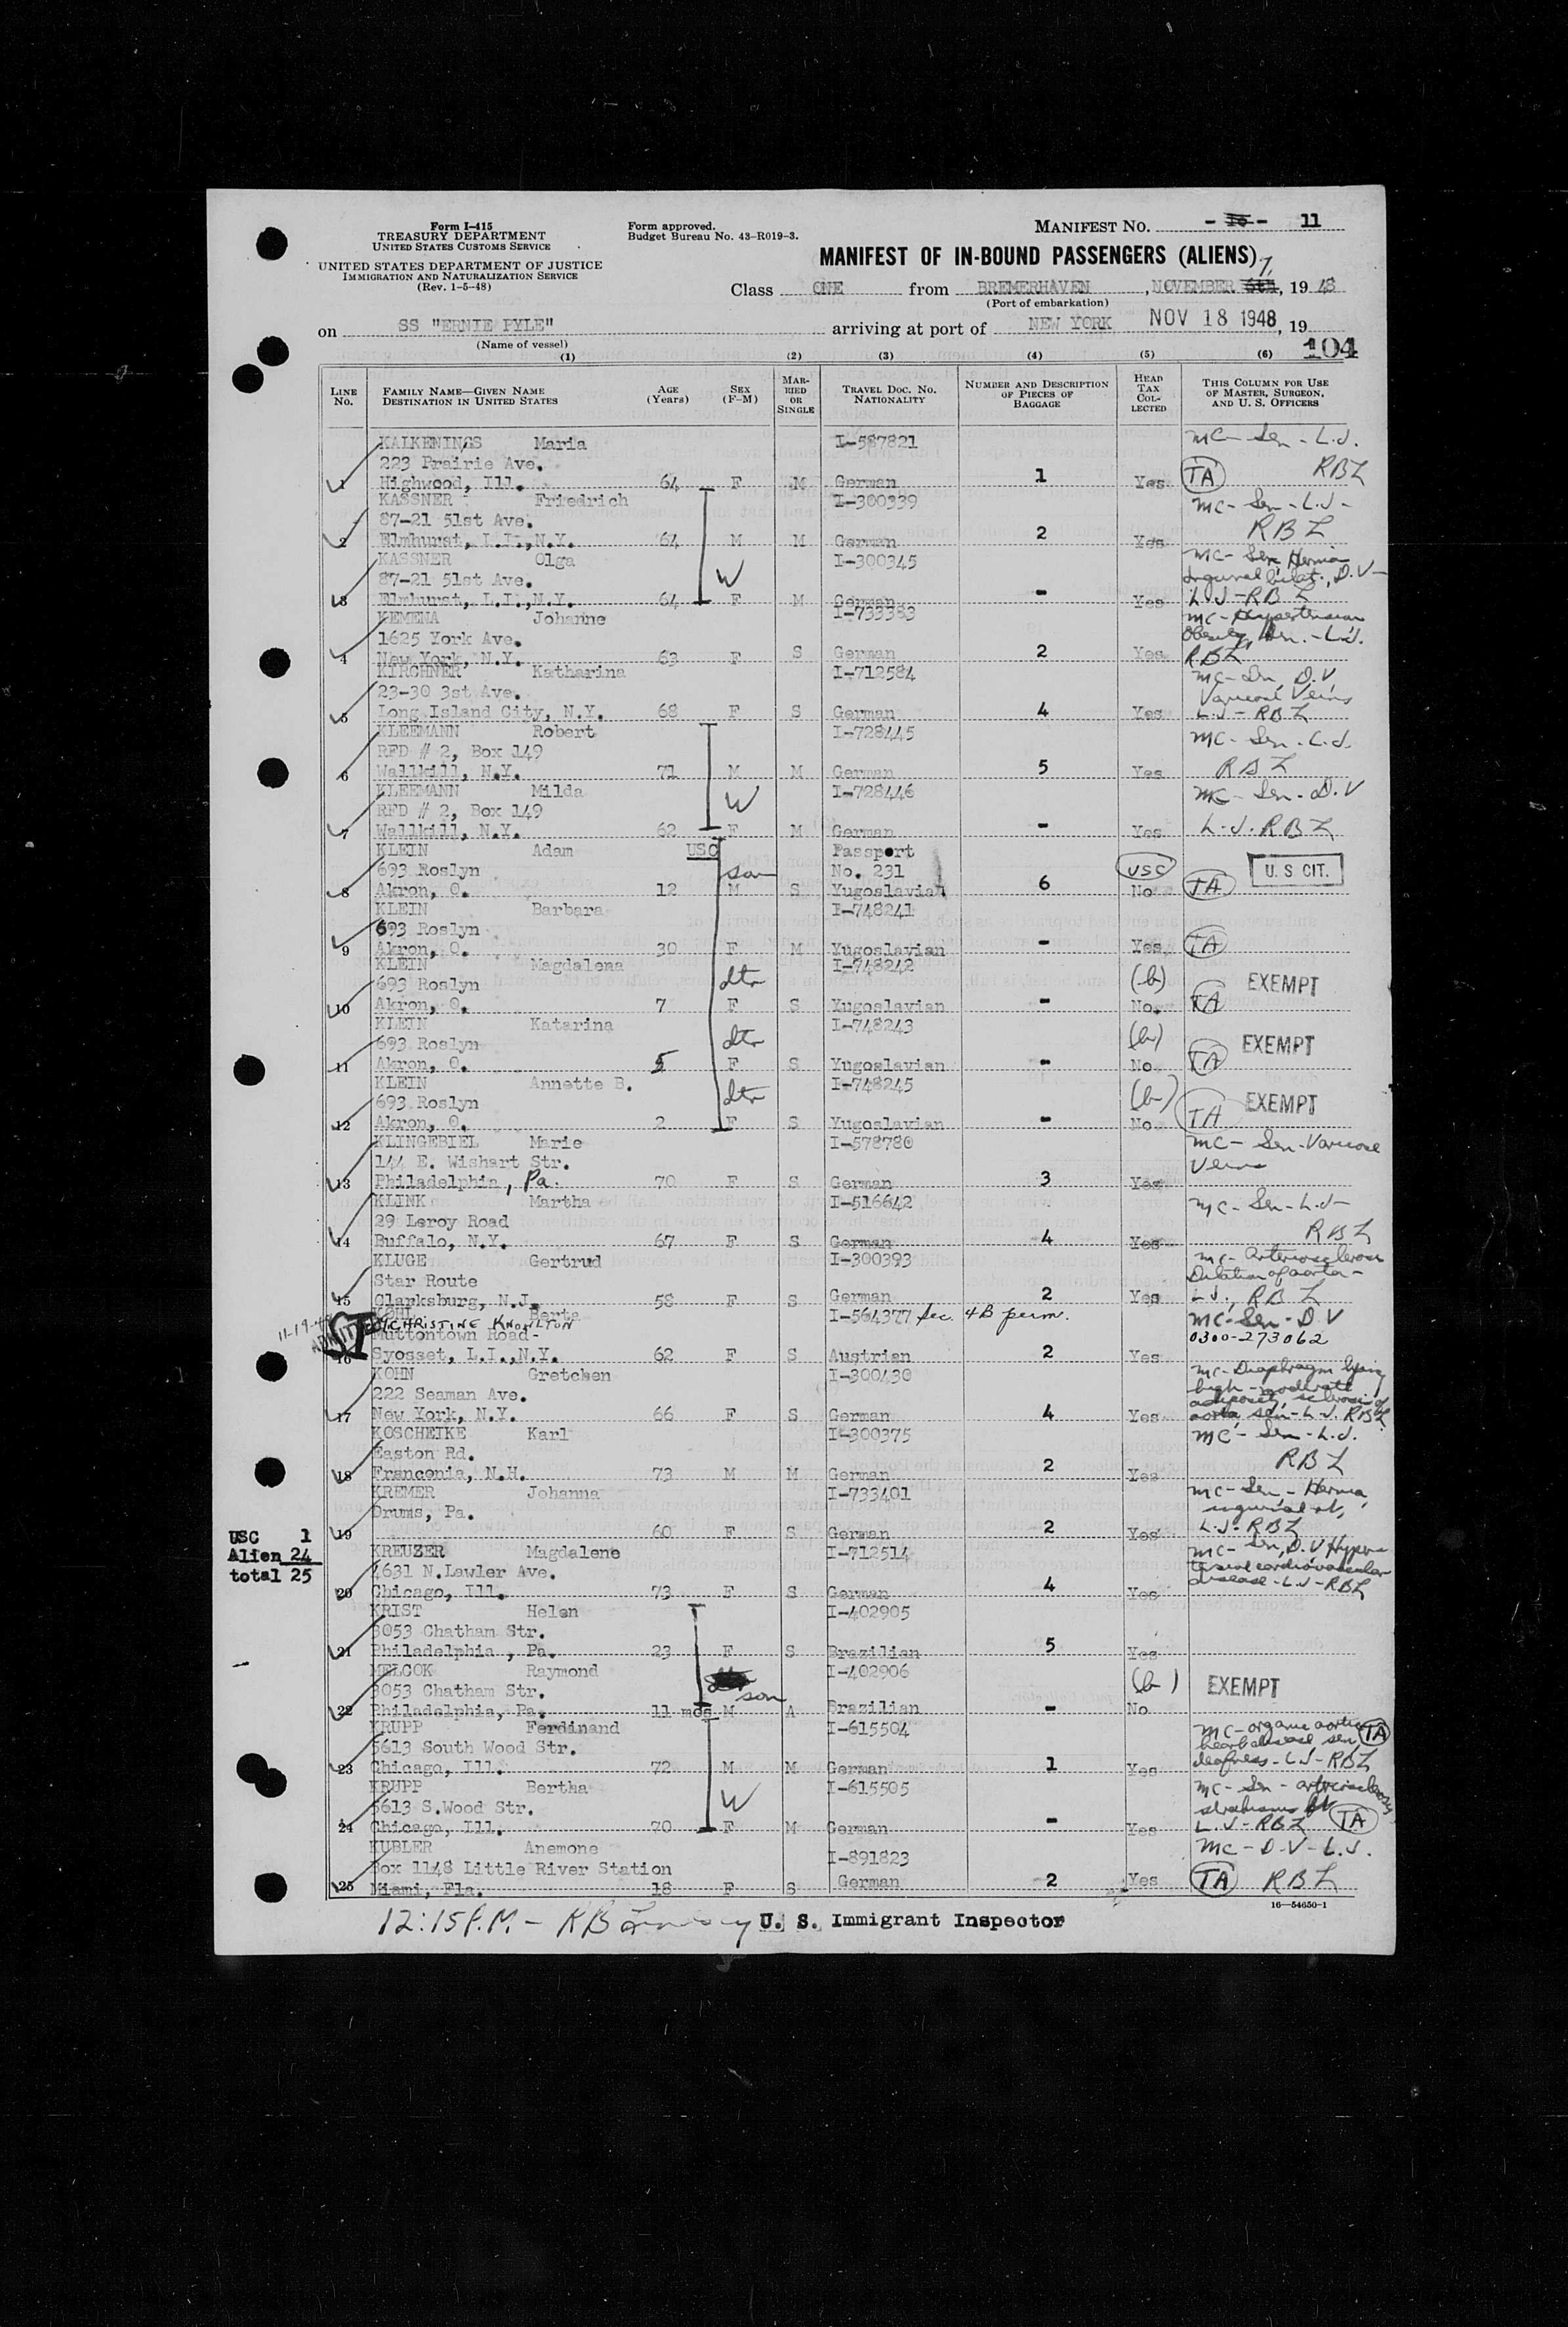 Form I-415
TREASURY DEPARTMENT
UNITED STATES CUSTOMS SERVICE
UNITED STATES DEPARTMENT OF JUSTICE
IMMIGRATION AND NATURALIZATION SERVICE
(Rev. 1-5-48)
Form approved.
Budget Bureau No. 43-R019-3.
MANIFEST NO. - 10 - 11
MANIFEST OF IN-BOUND PASSENGERS (ALIENS)
Class ONE from BREMERHAVEN, NOVEMBER 6th 7, 1948
(Port of embarkation)
on SS "ERNIE PYLE" arriving at port of NEW YORK NOV 18 1948, 19
(Name of vessel)
104
(1) (2) (3) (4) (5) (6)
LINE NO. FAMILY NAME—GIVEN NAME DESTINATION IN UNITED STATES AGE (Years) SEX (F-M) MARRIED OR SINGLE TRAVEL DOC. NO. NATIONALITY NUMBER AND DESCRIPTION OF PIECES OF BAGGAGE HEAD TAX COLLECTED THIS COLUMN FOR USE OF MASTER, SURGEON, AND U. S. OFFICERS
KALKENINGS Maria I-587821 MC - Sen - L.J.
223 Prairie Ave. RBL
1 Highwood, Ill. 64 F M German 1 Yes TA
KASSNER Friedrich I-300339 MC - Sen - L.J -
87-21 51st Ave. RBL
2 Elmhurst, L.I.,N.Y. 64 M M German 2 Yes
KASSNER Olga I-300345 MC - Sen, Hernia
87-21 51st Ave. W inguinal bilat., D.V -
3 Elmhurst, L.I.,N.Y. 64 F M German - Yes L.J - RBL
KEMENA Johanne I-733383 MC - Hypertension
1625 York Ave. Obesity, Sen. - L.J.
4 New York, N.Y. 63 F S German 2 Yes RBL
KIRCHNER Katharina I-712584 MC - Sen, D.V,
23-30 3st Ave. Varicose Veins
5 Long Island City, N.Y. 68 F S German 4 Yes L.J - RBL
KLEEMANN Robert I-728445 MC - Sen - L.J.
RFD # 2, Box 149
6 Wallkill, N.Y. 71 M M German 5 Yes RBL
KLEEMANN Milda I-728446 MC - Sen - D.V
RFD # 2, Box 149 W
7 Wallkill, N.Y. 62 F M German - Yes L.J. RBL
KLEIN Adam USC Passport
693 Roslyn son No. 231 USC U.S CIT.
8 Akron, O. 12 M S Yugoslavian 6 No TA
KLEIN Barbara I-748241
693 Roslyn
9 Akron, O. 30 F M Yugoslavian - Yes TA
KLEIN Magdalena I-748242
693 Roslyn dtr (b) EXEMPT
10 Akron, O. 7 F S Yugoslavian - No. TA
KLEIN Katarina I-748243
693 Roslyn dtr (b) EXEMPT
11 Akron, O. 5 F S Yugoslavian - No TA
KLEIN Annette B. I-748245
693 Roslyn dtr (b) EXEMPT
12 Akron, O. 2 F S Yugoslavian - No TA
KLINGEBIEL Marie I-578780 MC - Sen - Varicose
144 E. Wishart Str. Veins
13 Philadelphin, Pa. 70 F S German 3 Yes
KLINK Martha I-516642 MC - Sen - L.J -
29 Leroy Road
14 Buffalo, N.Y. 67 F S German 4 Yes RBL
KLUGE Gertrud I-300393 MC - Arteriosclerosis
Star Route Dilation of aorta -
15 Clarksburg, N.J. 58 F S German 2 Yes L.J., RBL
KOHL Berta I-564377 Sec. 4B perm. MC - Sen - D.V
CHRISTINE KNOWLTON
Muttontown Road - 0300-273062
11-19- ADMITTED
16 Syosset, L.I.,N.Y. 62 F S Austrian 2 Yes
KOHN Gretchen I-300430 MC - Diaphragm lying
222 Seaman Ave. high - moderate adiposity, sclerosis of
17 New York, N.Y. 66 F S German 4 Yes aorta, sen - L.J. RBL
KOSCHEIKE Karl I-300375 MC - Sen - L.J.
Easton Rd.
18 Franconia, N.H. 73 M M German 2 Yes RBL
KREMER Johanna I-733401 MC - Sen - Hernia,
Drums, Pa. inguinal rt,
19 60 F S German 2 Yes L.J - RBL
USC 1
Alien 24
total 25
KREUZER Magdalene I-712514 MC - Sen, D.V Hyper-
4631 N.Lawler Ave. tensive cardiovascular
20 Chicago, Ill. 73 F S German 4 Yes disease - L.J - RBL
KRIST Helen I-402905
3053 Chatham Str.
21 Philadelphia , Pa. 23 F S Brazilian 5 Yes
MELCOK Raymond I-402906
3053 Chatham Str. son (b) EXEMPT
22 Philadelphia, Pa. 11 mos M A Brazilian - No
KRUPP Ferdinand I-615504 MC - organic aortic TA
5613 South Wood Str. heart disease sen,
23 Chicago, Ill. 72 M M German 1 Yes deafness - L.J - RBL
KRUPP Bertha I-615505 MC - Sen - arteriosclerosis
5613 S.Wood Str. W strabismus
24 Chicago, Ill. 70 F M German - Yes L.J - RBL TA
KUBLER Anemone I-891823 MC - D.V - L.J.
Box 1148 Little River Station
25 Miami, Fla. 18 F S German 2 Yes TA RBL
16—54650-1
12:15 P.M. - U. S. Immigrant Inspector